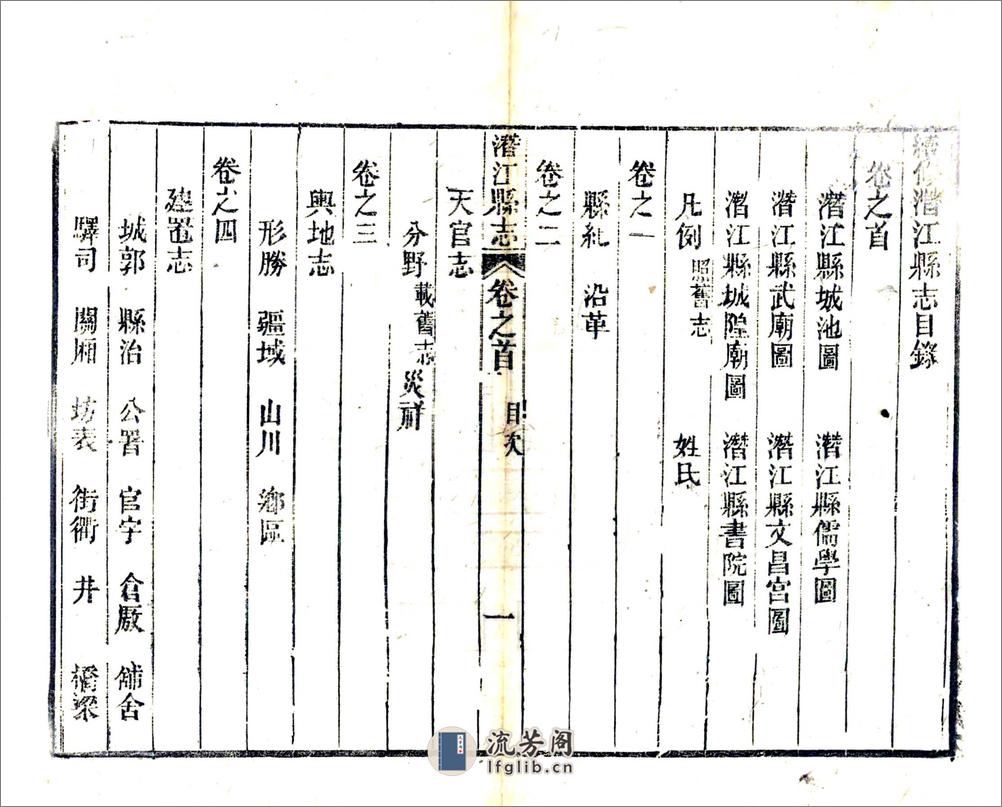 續修潛江縣志目錄
卷之首
潛江縣城池圖　潛江縣儒學圖
潛江縣武廟圖　潛江縣文昌宮圖
潛江縣城隍廟圖　潛江縣書院圖
凡例照舊志　姓氏
卷之一
縣紀　沿革
卷之二
潛江縣志　卷之首　目次　一
天官志
分野載舊志　災祥
卷之三
輿地志
形勝　疆域　山川　鄉區
卷之四
建置志
城郭　縣治　公署　官宇　倉厫　舖舍
驛司　關厢　坊表　街衢　井　橋梁
流芳阁
lfglib.cn